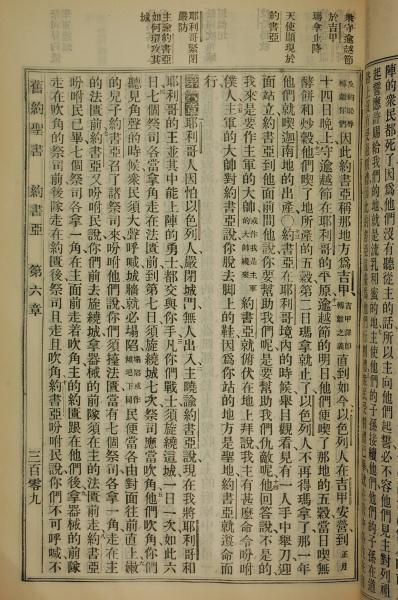 陣的衆民都死了因爲他們沒有聽從主的話所以主向他們起誓必不容他們見主對列祖
起誓應許賜給我們的地就是流乳和蜜的地主使他們的子孫接續他們他們的子孫在道
衆守逾越節
於吉甲
瑪拿止降
天使顯現於
約書亞
耶利哥緊閉
嚴防
主諭約書亞
如何環攻其
城
因此約書亞稱那地方爲吉甲直到如今以色列人在吉甲安營到正月
十四日晚上守逾越節在耶利哥的平原逾越節的明日他們便喫了那地的五穀當日喫無
酵餅和炒穀他們喫了地所產的五穀第二日瑪拿就止了以色列人不再得瑪拿了那一年
他們就喫迦南地的出產○約書亞在耶利哥境內的時候舉目觀看見有一人手中舉刀迎
面站立約書亞到他面前問他說你要幫助我們呢是要幫助我們仇敵呢他回答說不是的
我來是要作主軍的大帥或作我是主軍的大帥纔來約書亞就俯伏在地上拜說我主有甚麽命令吩咐
僕人主軍的大帥對約書亞說你脫去腳上的鞋因爲你站的地方是聖地約書亞就遵命而
行
耶利哥人因怕以色列人嚴閉城門無人出入主曉諭約書亞說現在我將耶利哥和
耶利哥的王並其中能上陣的勇士都交與你手你們戰士須旋繞這城一日一次如此六
日七個祭司各當拿角走在法匱前到第七日須旋繞城七次祭司應當吹角你們
聽見角聲的時候衆民須大聲呼喊城牆就必塌陷民便當各由對面往前直上嫩
的兒子約書亞召了諸祭司來吩咐他們說你們須擡法匱當有七個祭司各拿一角走在主
的法匱前約書亞又吩咐民說你們前去旋繞城拿器械的前隊須在主的法匱前走約書亞
吩咐民已畢七個祭司各拿一角在主面前走着吹角主的約匱跟在他們後拿器械的前隊
走在吹角的祭司前後隊走在約匱後祭司且走且吹角約書亞吩咐民說你們不可呼喊不
舊約聖書 約書亞 第六章 三百零九